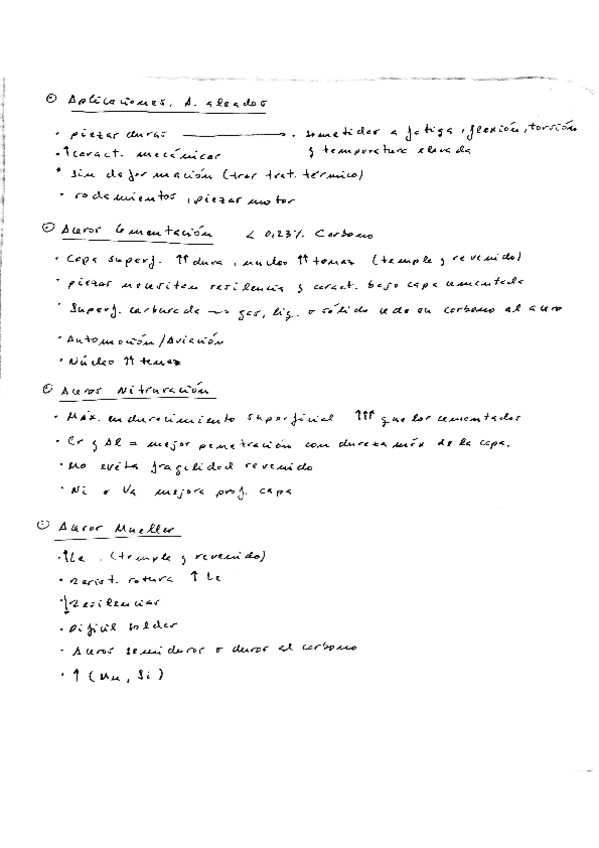 Aplicaciones, A. aleados
· piezas duras ⟶ · sometidos a fatiga, flexión, torsión
· ↑ caract. mecánicas y temperatura elevada
· sin deformación (tras trat. térmico)
· rodamientos, piezas motor
Aceros Cementación < 0,23% Carbono
· Capa superf. ↑↑ dura, núcleo ↑↑ tenaz (temple y revenido)
· piezas necesiten resilencia y caract. bajo capa cementada
· Superf. carburada ⟶ gas, líq. o sólido cede en carbono al acero
· Automoción / Aviación
· Núcleo ↑↑ tenaz
Aceros Nitruración
· Máx. endurecimiento superficial ↑↑↑ que los cementados
· Cr y Al = mejor penetración con dureza máx de la capa.
· no evita fragilidad revenido
· Ni o Va mejora prof. capa
Aceros Muelles
· ↑ Le. (temple y revenido)
· Resist. rotura ↑ Le
· Resilencias
· Difícil soldar
· Aceros semiduros o duros al carbono
· ↑ (Mn, Si)